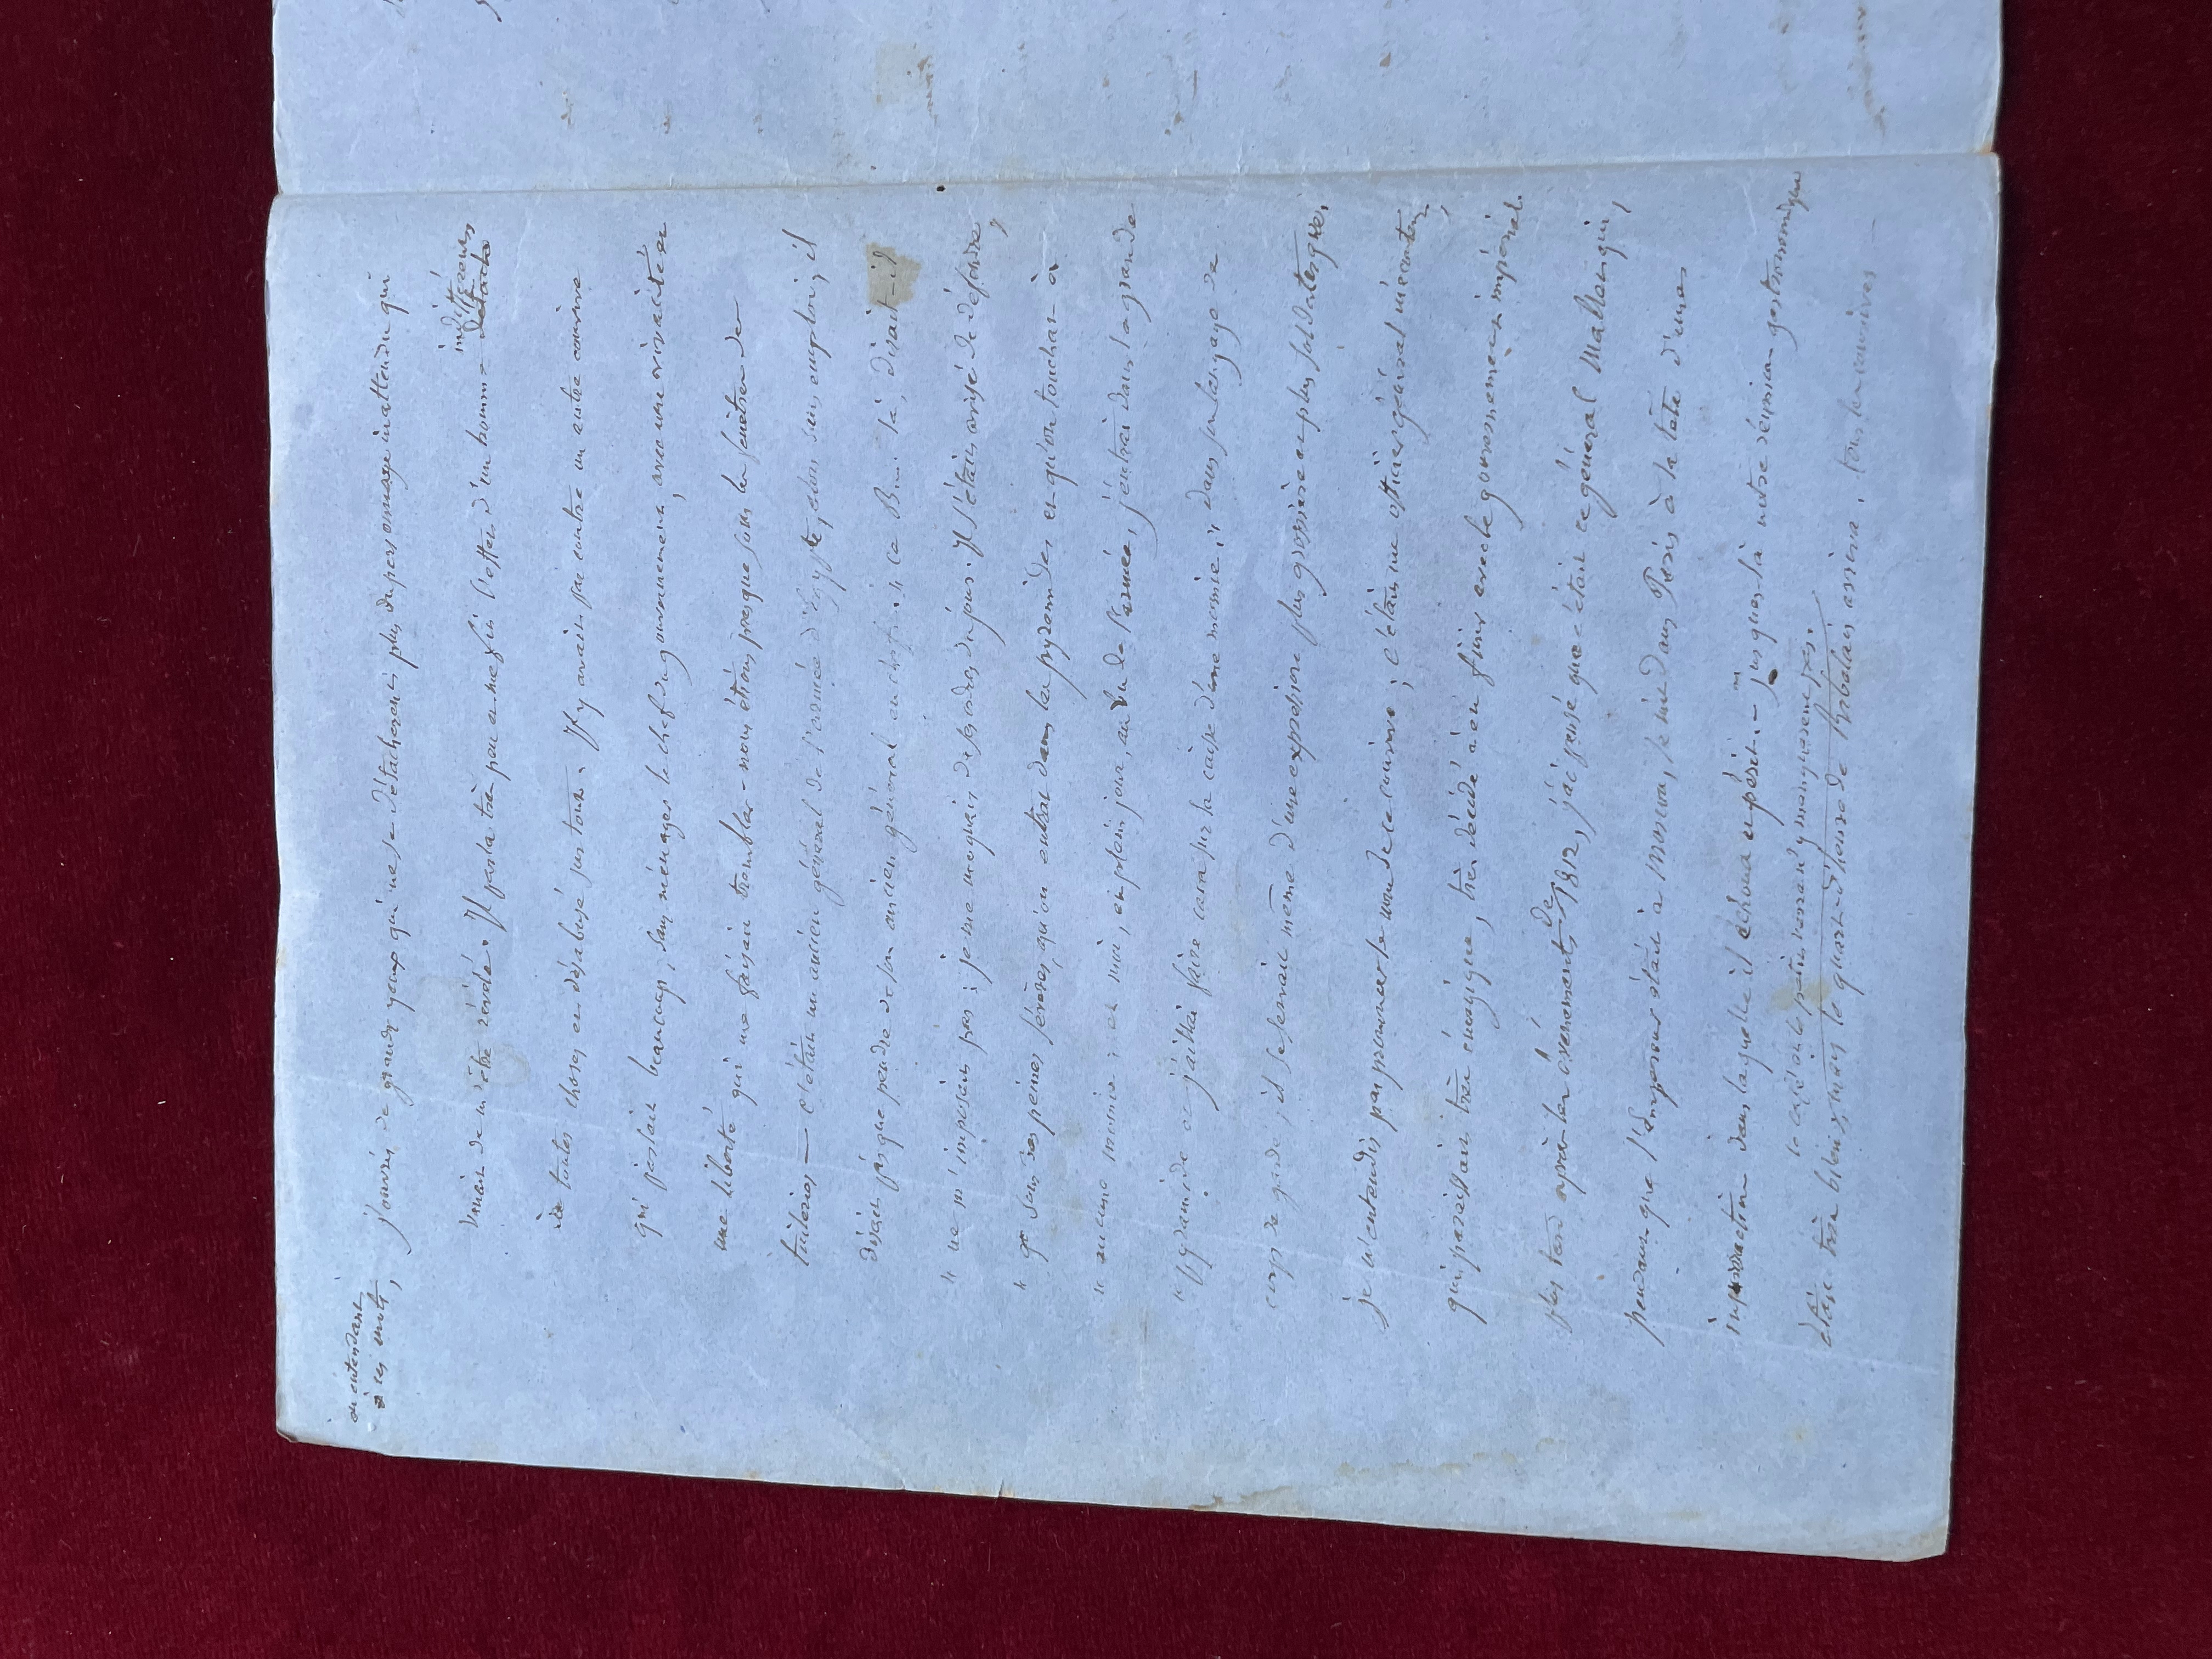 en entendant
à ces mots,
J'ouvris de grands yeux qui ne se détachèrent plus du personnage inattendu qui
indifférent
venait de m'être révélé. Il parla très peu et me fit l'effet d'un homme détaché
de toutes choses et désabusé sur tout. Il y avait par contre un autre convive
qui parlait beaucoup, sans ménager le chef du gouvernement, avec une vivacité et
une liberté qui me faisait trembler - nous étions presque sous les fenêtres des
Tuileries — c'était un ancien général de l'armée d'Egypte, alors sans emploi, il
disait pis que pendre de son ancien général en chef : « ce B... là, disait-il
" ne m'imposait pas ; je me moquais de ses ordres du jour. Il s'était avisé de défendre,
" sous des peines sévères, qu'on entrât dans les pyramides et qu'on touchât à
" aucune momie ; et moi, en plein jour, au vu de l'armée, j'entrai dans la grande
" pyramide et j'allai faire caca sur la caisse d'une momie ; dans son langage de
corps de garde, il se servait même d'une expression plus grossière et plus soldatesque,
je n'entendis pas prononcer le nom de ce convive ; c'était un officier général mécontent,
qui paraissait très énergique, très décidé à en finir avec le gouvernement impérial.
plus tard après les évènements de 1812, j'ai pensé que c'était ce général Malet qui,
pendant que l'Empereur était à Moscou, se mit dans Paris à la tête d'une
insurrection dans laquelle il échoua et périt. - jusques-là notre réunion gastronomique
le café et le petit verre n'y manquèrent pas.
était très bien, mais le quart-d'heure de Rabelais arriva, tous les convives